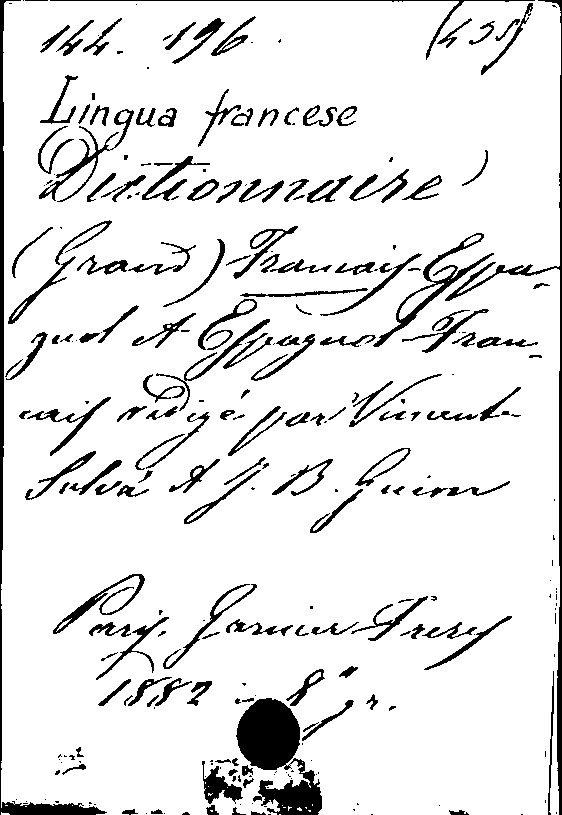 144. 196. (435)
Lingua francese
Dictionnaire
(Grand) Francais-Espa-
gnol et Espagnol-Fran-
cais rédigé par Vincente
Salvá et J. B. Guim
Paris. Garnier Freres
1882 in 8° gr.